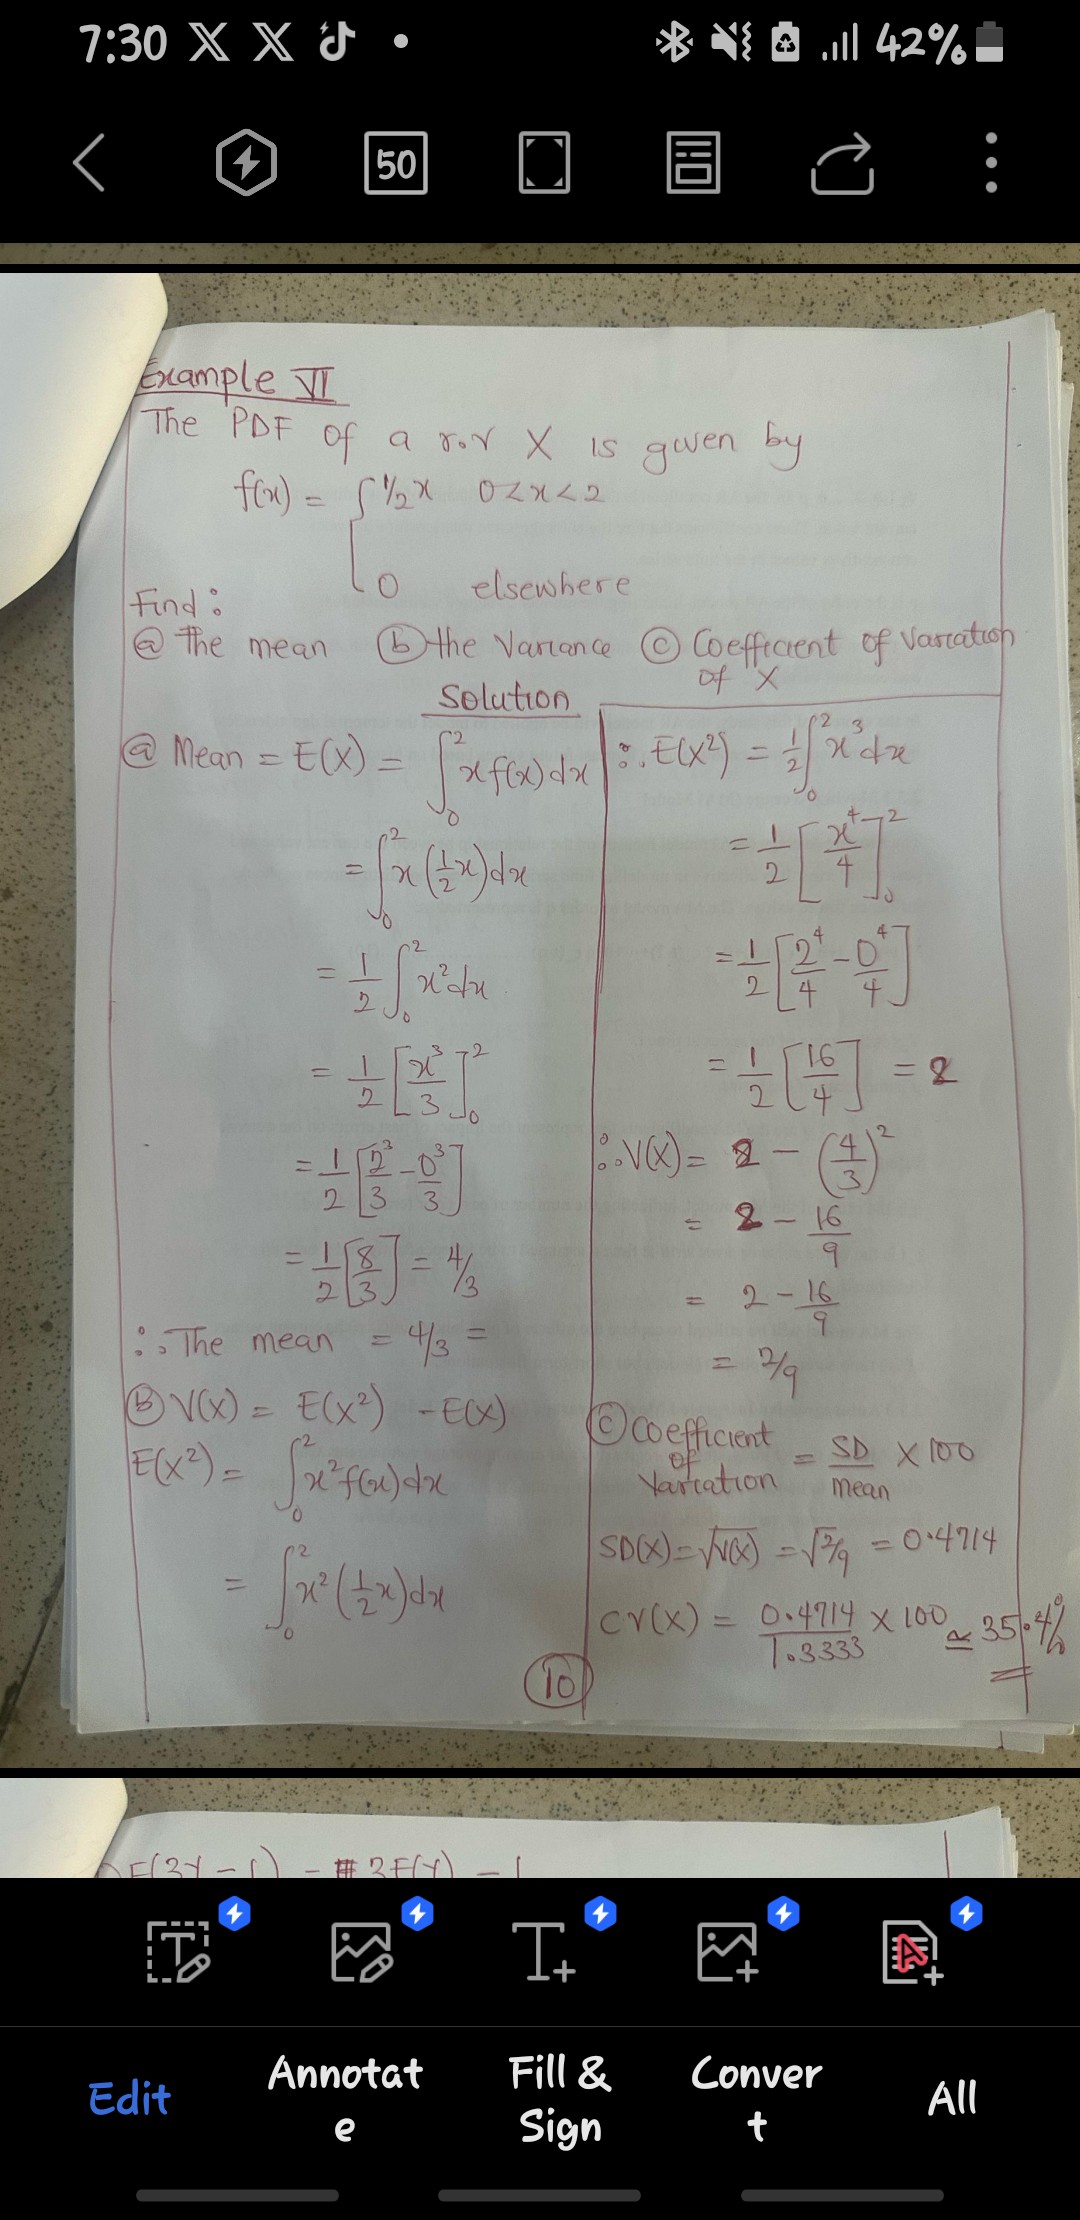 7:30
42%
50
Example VI
The PDF of a r.v X is given by
f(x) = { 1/2 x   0 < x < 2
0   elsewhere
Find :
ⓐ The mean ⓑ the Variance ⓒ Coefficient of Variation of X
Solution
ⓐ Mean = E(X) = ∫₀² x f(x) dx
= ∫₀² x (1/2 x) dx
= 1/2 ∫₀² x² dx
= 1/2 [x³/3]₀²
= 1/2 [2³/3 - 0³/3]
= 1/2 [8/3] = 4/3
∴ The mean = 4/3 =
Ⓑ V(X) = E(X²) - E(X)
E(X²) = ∫₀² x² f(x) dx
= ∫₀² x² (1/2 x) dx
∴ E(X²) = 1/2 ∫₀² x³ dx
= 1/2 [x⁴/4]₀²
= 1/2 [2⁴/4 - 0⁴/4]
= 1/2 [16/4] = 2
∴ V(X) = 2 - (4/3)²
= 2 - 16/9
= 2 - 16/9
= 2/9
Ⓒ Coefficient of Variation = SD/mean × 100
SD(X) = √V(X) = √2/9 = 0.4714
CV(X) = 0.4714/1.3333 × 100 ≃ 35.4%
10
E(3Y - 1) = 3E(Y) - 1
Edit
Annotate
Fill & Sign
Convert
All